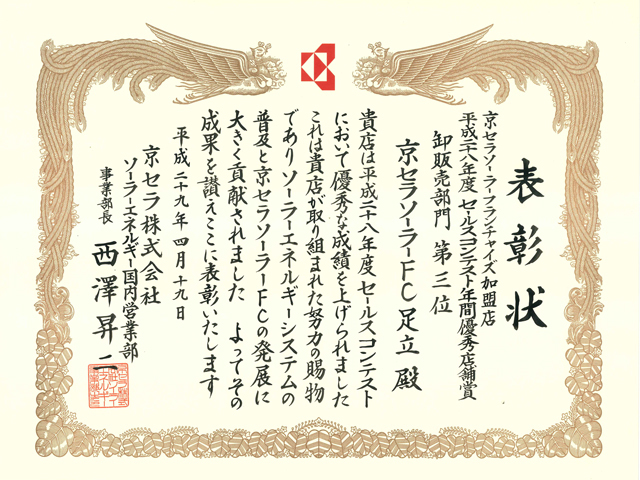 表彰状
京セラソーラーフランチャイズ加盟店
平成二十八年度 セールスコンテスト年間優秀店舗賞
卸販売部門 第三位
京セラソーラーFC足立 殿
貴店は平成二十八年度セールスコンテスト
において優秀な成績を上げられました
これは貴店が取り組まれた努力の賜物
でありソーラーエネルギーシステムの
普及と京セラソーラーFCの発展に
大きく貢献されました よってその
成果を讃えここに表彰いたします
平成二十九年四月十九日
京セラ株式会社
ソーラーエネルギー国内営業部
事業部長 西澤昇二